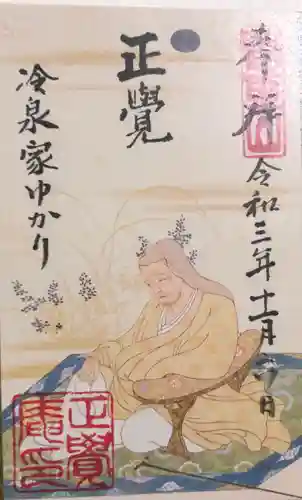 奉拝
令和三年十一月二十日
正覺
冷泉家ゆかり
正覺